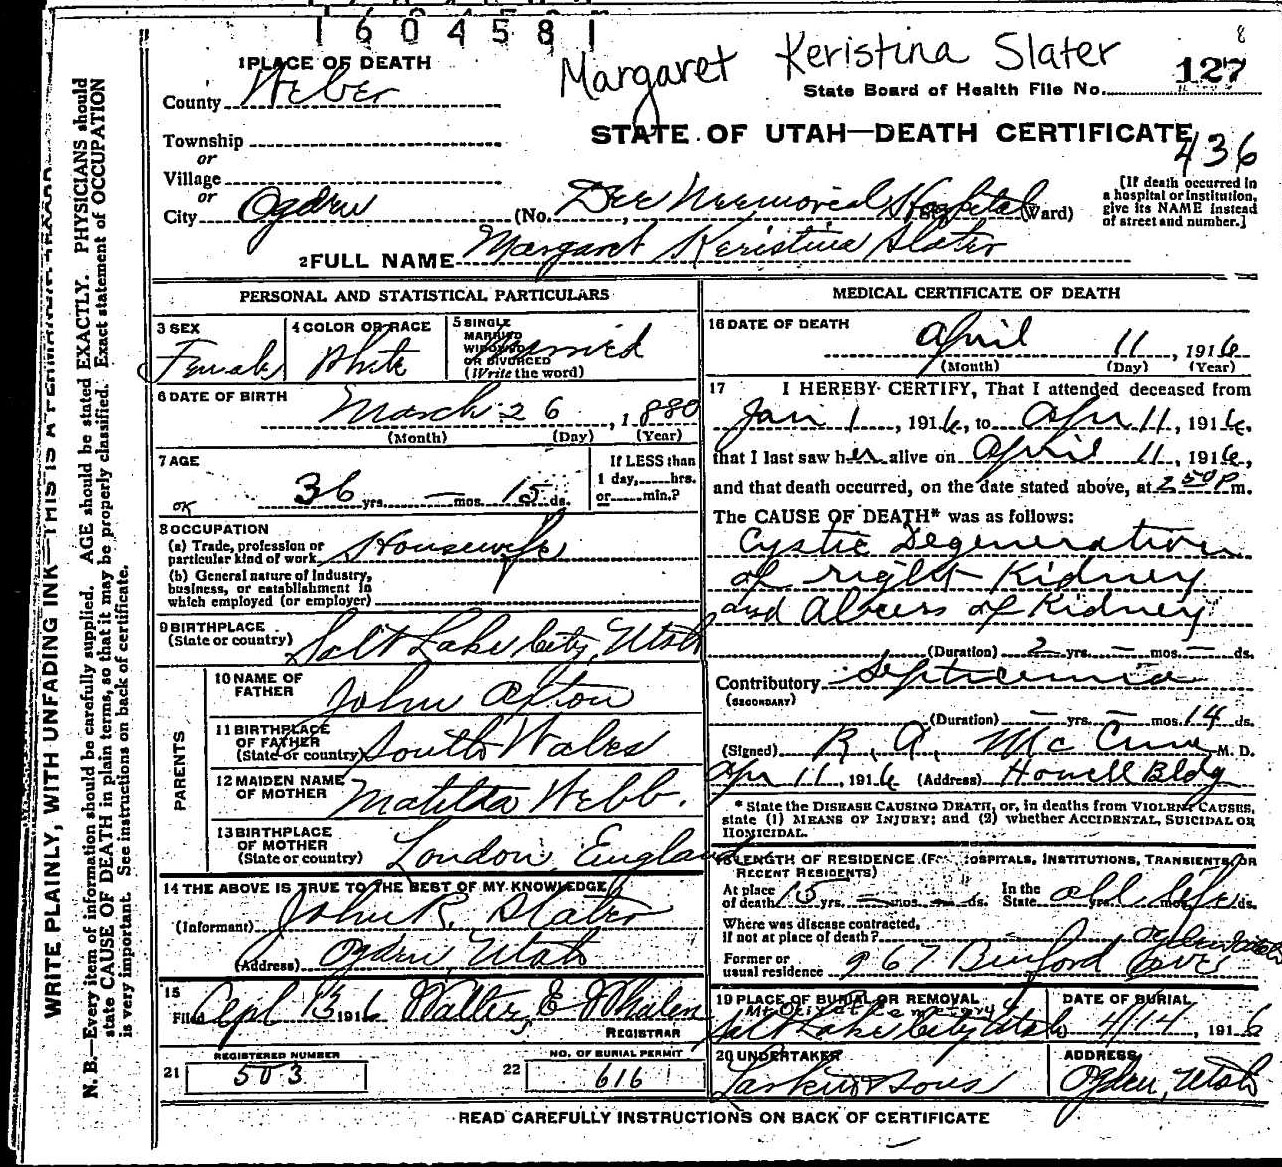 1604581
Margaret Keristina Slater
8
127
1 PLACE OF DEATH
County Weber
State Board of Health File No.
STATE OF UTAH—DEATH CERTIFICATE
436
Township
or
Village
or
City Ogden (No. Dee Memorial Hospital St. Ward)
[If death occurred in
a hospital or institution,
give its NAME instead
of street and number.]
2 FULL NAME Margaret Keristina Slater
PERSONAL AND STATISTICAL PARTICULARS
3 SEX
Female
4 COLOR OR RACE
White
5 SINGLE
MARRIED
WIDOWED
OR DIVORCED
(Write the word)
Married
6 DATE OF BIRTH
March 26, 1880
(Month) (Day) (Year)
7 AGE
OK
36 yrs. — mos. 15 ds.
If LESS than
1 day, hrs.
or min.?
8 OCCUPATION
(a) Trade, profession or
particular kind of work Housewife
(b) General nature of Industry,
business, or establishment in
which employed (or employer)
9 BIRTHPLACE
(State or country) Salt Lake City, Utah
PARENTS
10 NAME OF
FATHER John Afton
11 BIRTHPLACE
OF FATHER
(State or country) South Wales
12 MAIDEN NAME
OF MOTHER Matilda Webb.
13 BIRTHPLACE
OF MOTHER
(State or country) London, England
14 THE ABOVE IS TRUE TO THE BEST OF MY KNOWLEDGE
(Informant) John R. Slater
(Address) Ogden, Utah
15
Filed Apl 13 1916 Walter E Whalen
REGISTRAR
REGISTERED NUMBER
21 503
NO. OF BURIAL PERMIT
22 616
MEDICAL CERTIFICATE OF DEATH
16 DATE OF DEATH
April 11, 1916
(Month) (Day) (Year)
17 I HEREBY CERTIFY, That I attended deceased from
Jan 1, 1916, to Apr 11, 1916,
that I last saw her alive on April 11, 1916,
and that death occurred, on the date stated above, at 2 50 P m.
The CAUSE OF DEATH* was as follows:
Cystic Degeneration
of right Kidney
and Abcess of Kidney
(Duration) 2 yrs. — mos. — ds.
Contributory Septicemia
(SECONDARY)
(Duration) — yrs. — mos. 14 ds.
(Signed) R. A. McCune M. D.
Apr 11, 1916 (Address) Howell Bldg
* State the DISEASE CAUSING DEATH, or, in deaths from VIOLENT CAUSES,
state (1) MEANS OF INJURY; and (2) whether ACCIDENTAL, SUICIDAL OR
HOMICIDAL.
18 LENGTH OF RESIDENCE (FOR HOSPITALS, INSTITUTIONS, TRANSIENTS, OR
RECENT RESIDENTS)
At place
of death 15 yrs. — mos. — ds.
In the
State all life yrs. mos. ds.
Where was disease contracted,
If not at place of death?
Former or
usual residence 967 Binford Ave
19 PLACE OF BURIAL OR REMOVAL
Mt Olivet Cemetery
Salt Lake City Utah
DATE OF BURIAL
4/14, 1916
20 UNDERTAKER
Larkin & Sons
ADDRESS
Ogden, Utah
READ CAREFULLY INSTRUCTIONS ON BACK OF CERTIFICATE
WRITE PLAINLY, WITH UNFADING INK—THIS IS A PERMANENT RECORD
N. B.—Every item of information should be carefully supplied. AGE should be stated EXACTLY. PHYSICIANS should
state CAUSE OF DEATH in plain terms, so that it may be properly classified. Exact statement of OCCUPATION
is very important. See instructions on back of certificate.